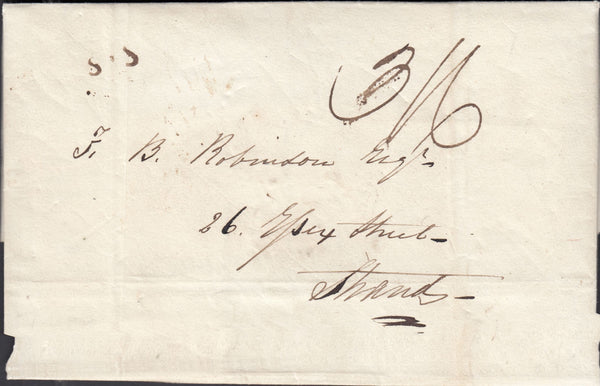 3/6
F. B. Robinson Esqr.
26. Essex Street
Strand